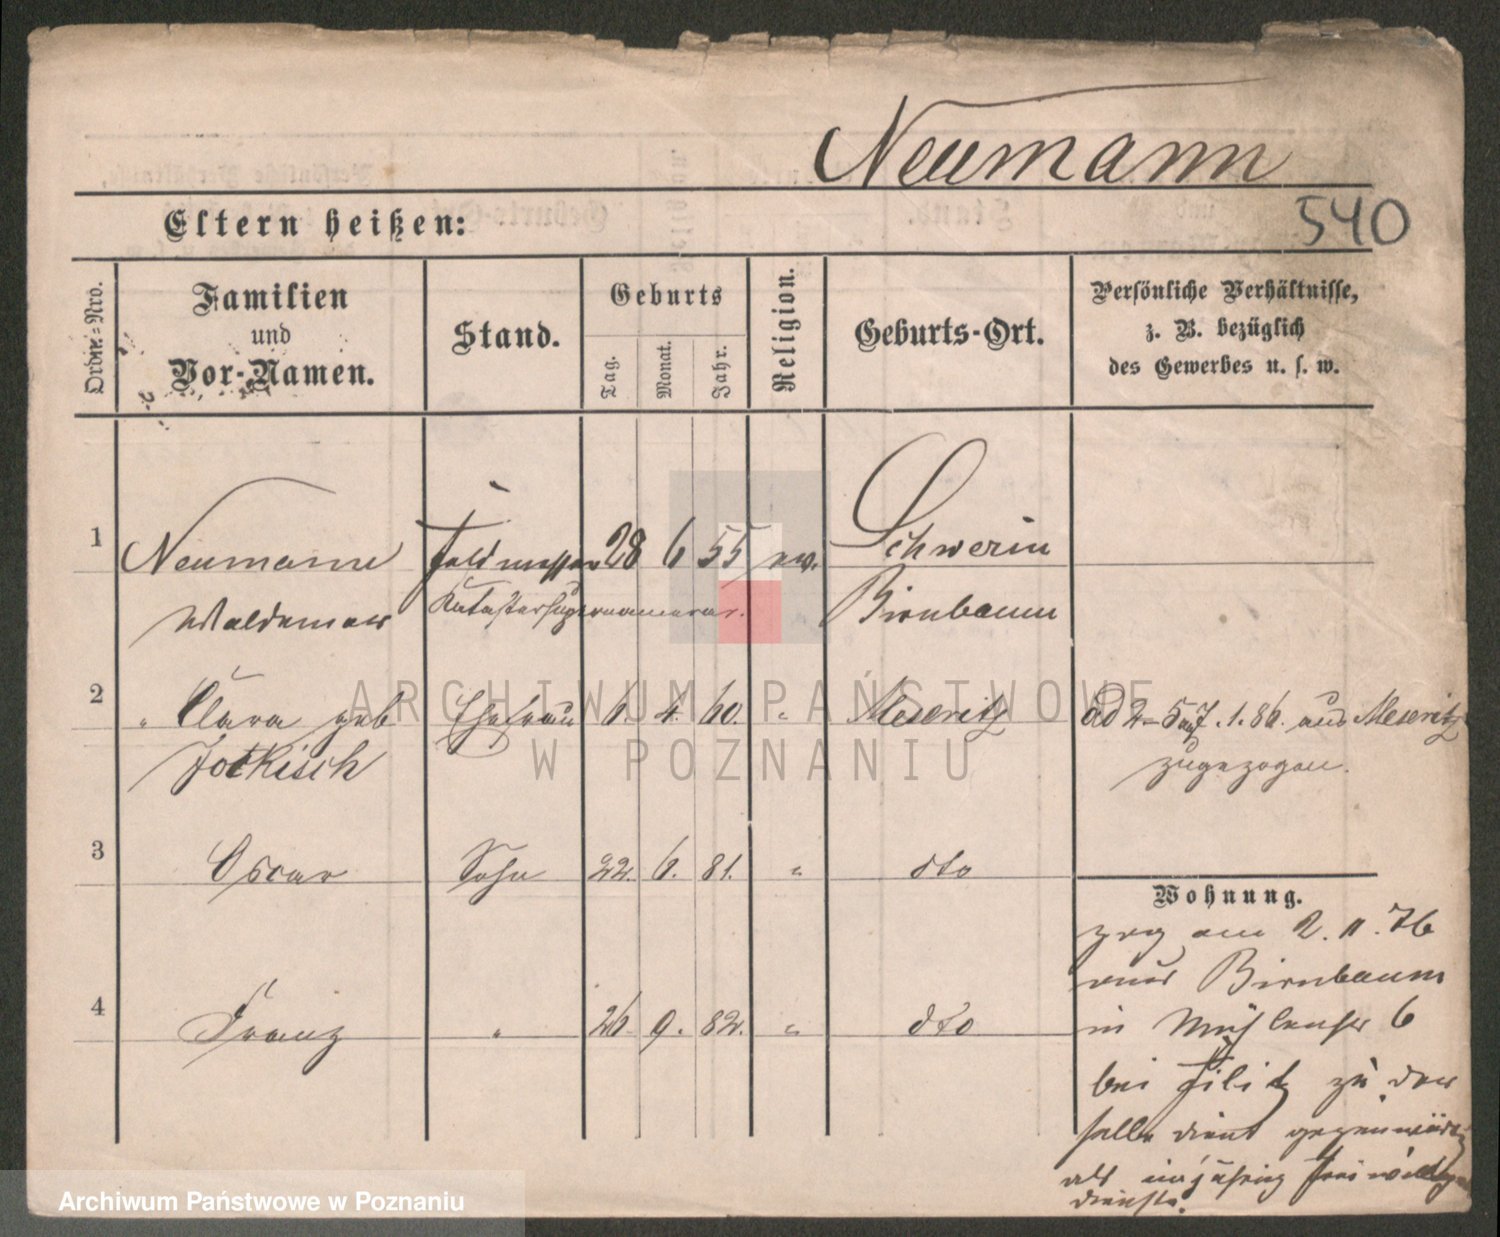 Neumann
540
Eltern heißen:
Ordin.-Nro.
Familien
und
Vor-Namen.
Stand.
Geburts
Tag.
Monat.
Jahr.
Religion.
Geburts-Ort.
Persönliche Verhältnisse,
z. B. bezüglich
des Gewerbes u. s. w.
1 Neumann Feldmesser 28 6 55 ev. Schwerin
Waldemar Katastersupernumerar. Birnbaum
2 " Clara geb Ehefrau 6. 4. 60. " Meseritz ad 2–5 auf 7.1.86. aus Meseritz
Jockisch zugezogen.
3 Oscar Sohn 22. 6. 81. " dto
Wohnung.
zog am 2. 11. 76
aus Birnbaum
4 Franz " 26 9. 82. " dto
in Mühlenstr 6
bei zu der
selbe dient gegenwärtig
als einjährig freiwillig
ARCHIWUM PAŃSTWOWE
W POZNANIU
Archiwum Państwowe w Poznaniu